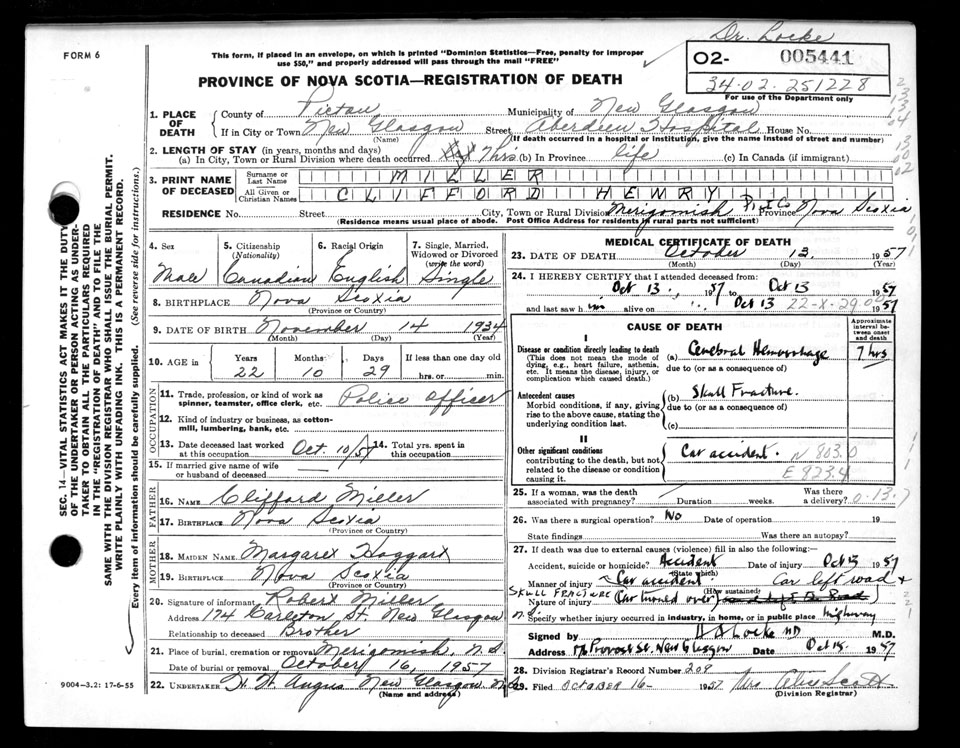 Dr. Locke
FORM 6
This form, if placed in an envelope, on which is printed "Dominion Statistics—Free, penalty for improper
use $50," and properly addressed will pass through the mail "FREE"
02- 005441
34.02.251228
For use of the Department only
PROVINCE OF NOVA SCOTIA—REGISTRATION OF DEATH
1. PLACE OF DEATH
County of Pictou Municipality of New Glasgow
If in City or Town New Glasgow Street Aberdeen Hospital House No.
(Name) (If death occurred in a hospital or institution, give the name instead of street and number)
2. LENGTH OF STAY (in years, months and days)
(a) In City, Town or Rural Division where death occurred 7 hrs (b) In Province life (c) In Canada (if immigrant)
3. PRINT NAME OF DECEASED
Surname or Last Name MILLER
All Given or Christian Names CLIFFORD HENRY
RESIDENCE No. Street City, Town or Rural Division Merigomish Pict Co Province Nova Scotia
(Residence means usual place of abode. Post Office Address for residents in rural parts not sufficient)
4. Sex Male
5. Citizenship (Nationality) Canadian
6. Racial Origin English
7. Single, Married, Widowed or Divorced (write the word) Single
8. BIRTHPLACE Nova Scotia
(Province or Country)
9. DATE OF BIRTH November 14 1934
(Month) (Day) (Year)
10. AGE in Years 22 Months 10 Days 29 If less than one day old hrs. or min.
OCCUPATION
11. Trade, profession, or kind of work as spinner, teamster, office clerk, etc. Police Officer
12. Kind of industry or business, as cotton-mill, lumbering, bank, etc.
13. Date deceased last worked at this occupation Oct. 10/57 14. Total yrs. spent in this occupation
15. If married give name of wife or husband of deceased
FATHER
16. NAME Clifford Miller
17. BIRTHPLACE Nova Scotia
(Province or Country)
MOTHER
18. MAIDEN NAME Margaret Haggart
19. BIRTHPLACE Nova Scotia
(Province or Country)
20. Signature of informant Robert Miller
Address 174 Carleton St. New Glasgow
Relationship to deceased Brother
21. Place of burial, cremation or removal Merigomish, N.S.
Date of burial or removal October 16, 1957
22. UNDERTAKER Angus New Glasgow, N.S.
(Name and address)
MEDICAL CERTIFICATE OF DEATH
23. DATE OF DEATH October 13, 1957
(Month) (Day) (Year)
24. I HEREBY CERTIFY that I attended deceased from:
Oct 13, 1957 to Oct 13 1957
and last saw him alive on Oct 13 1957
22-X-29
CAUSE OF DEATH
Approximate interval between onset and death
I
Disease or condition directly leading to death
(This does not mean the mode of dying, e.g., heart failure, asthenia, etc. It means the disease, injury, or complication which caused death.)
(a) Cerebral Hemorrhage 7 hrs
due to (or as a consequence of)
Antecedent causes
Morbid conditions, if any, giving rise to the above cause, stating the underlying condition last.
(b) Skull Fracture.
due to (or as a consequence of)
(c)
II
Other significant conditions
contributing to the death, but not related to the disease or condition causing it.
Car accident. N 803.0
E 823.4
25. If a woman, was the death associated with pregnancy? Duration weeks. Was there a delivery?
0.13.7
26. Was there a surgical operation? No Date of operation 19
State findings Was there an autopsy?
27. If death was due to external causes (violence) fill in also the following:—
Accident, suicide or homicide? Accident Date of injury Oct 13 1957
(State which)
Manner of injury Car accident Car left road &
(How sustained)
SKULL FRACTURE
Nature of injury (Car turned over)
Specify whether injury occurred in industry, in home, or in public place highway
Signed by H B Locke MD M.D.
Address Provost St. New Glasgow Date Oct 15. 1957
28. Division Registrar's Record Number 209
29. Filed OCTOBER 16- 1957 Mrs Alice Scott
(Division Registrar)
SEC. 14—VITAL STATISTICS ACT MAKES IT THE DUTY
OF THE UNDERTAKER OR PERSON ACTING AS UNDER-
TAKER TO OBTAIN ALL THE PARTICULARS REQUIRED
IN THE "REGISTRATION OF DEATH" AND TO FILE THE
SAME WITH THE DIVISION REGISTRAR WHO SHALL ISSUE THE BURIAL PERMIT.
WRITE PLAINLY WITH UNFADING INK. THIS IS A PERMANENT RECORD.
Every item of information should be carefully supplied. (See reverse side for instructions.)
9004-3.2: 17-6-55